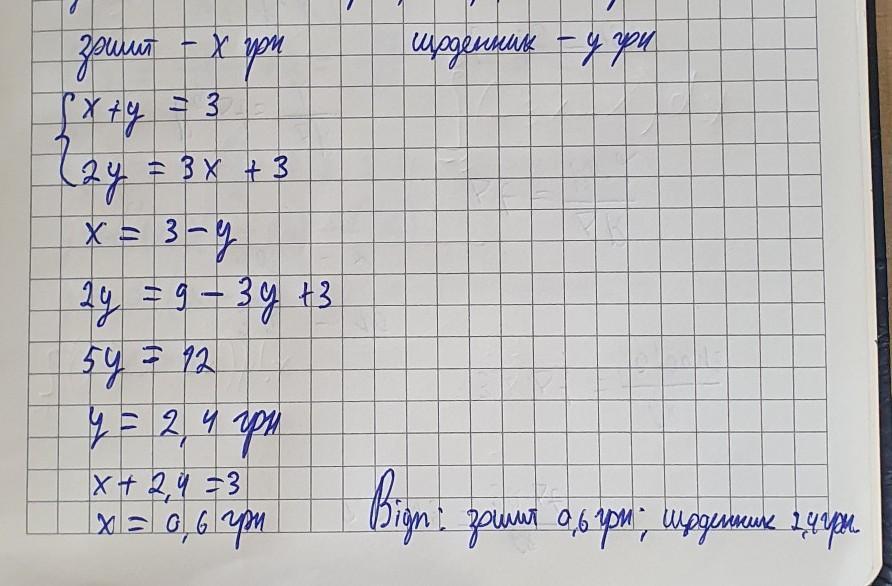 зошит - x грн щоденник - y грн
{ x + y = 3
2y = 3x + 3
x = 3 - y
2y = 9 - 3y + 3
5y = 12
y = 2,4 грн
x + 2,4 = 3
x = 0,6 грн Відп: зошит 0,6 грн; щоденник 2,4 грн.